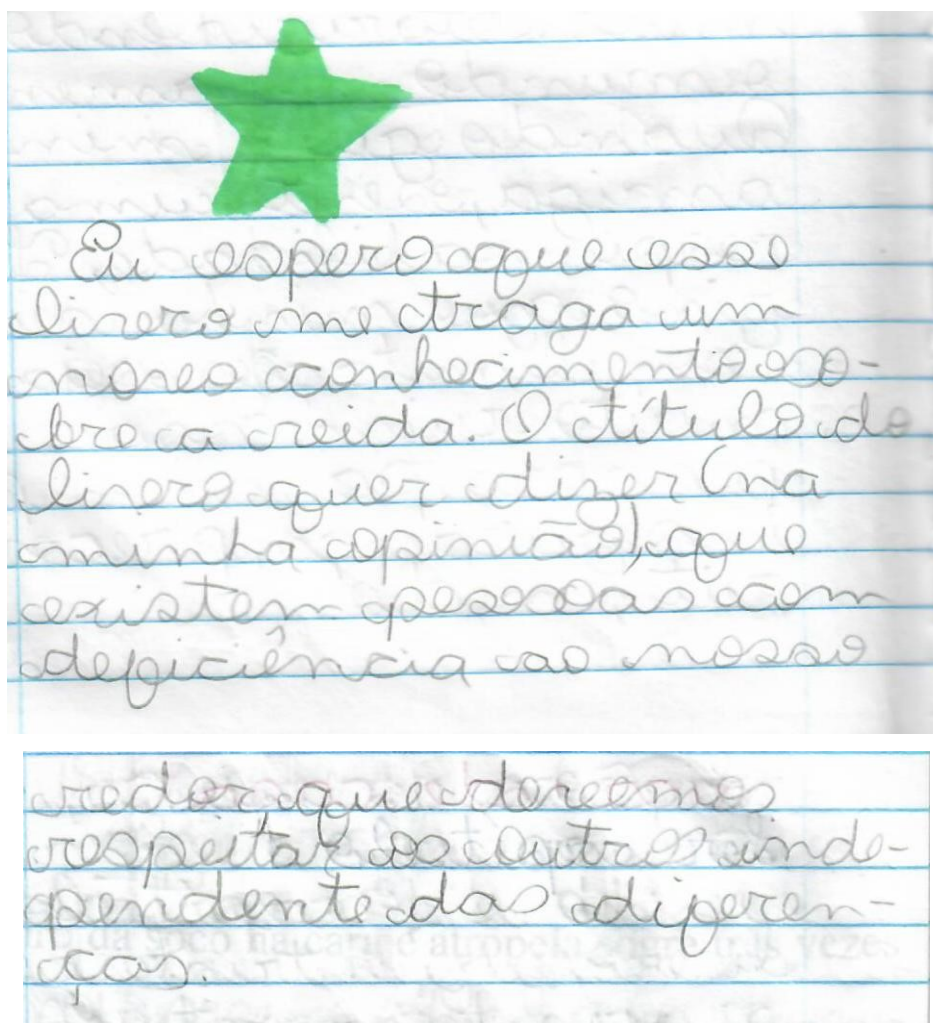 Eu espero que esse
livro me traga um
novo conhecimento so-
bre a vida. O título do
livro quer dizer (na
minha opinião), que
existem pessoas com
deficiência ao nosso
redor que devemos
respeitar os outros inde-
pendente das diferen-
ças.